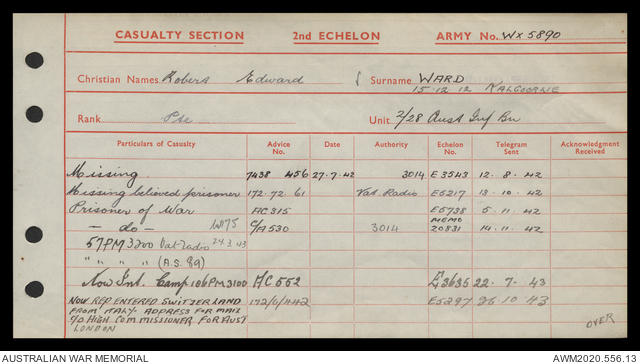 CASUALTY SECTION 2nd ECHELON ARMY No. WX5890
Christian Names Robert Edward Surname WARD
15.12.12 KALGOORLIE
Rank Pte Unit 2/28 Aust Inf Bn
Particulars of Casualty Advice No. Date Authority Echelon No. Telegram Sent Acknowledgment Received
Missing 7438 456 27.7.42 3014 E3543 12.8.42
Missing believed prisoner 172.72.61 Vat. Radio E5217 13.10.42
Prisoner of War AC315 E5738 5.11.42
— do — C/A530 3014 MEMO 20831 14.11.42
57PM3200 Vat-radio 24.3.43
" " " " (A.S. 89)
Now Int. Camp 106PM3100 AC552 E3635 22.7.43
NOW REP ENTERED SWITZERLAND 172/6/442 E5297 26.10.43
FROM ITALY. ADDRESS FOR MAIL
C/O HIGH COMMISSIONER FOR AUST
LONDON
OVER
AUSTRALIAN WAR MEMORIAL AWM2020.556.13